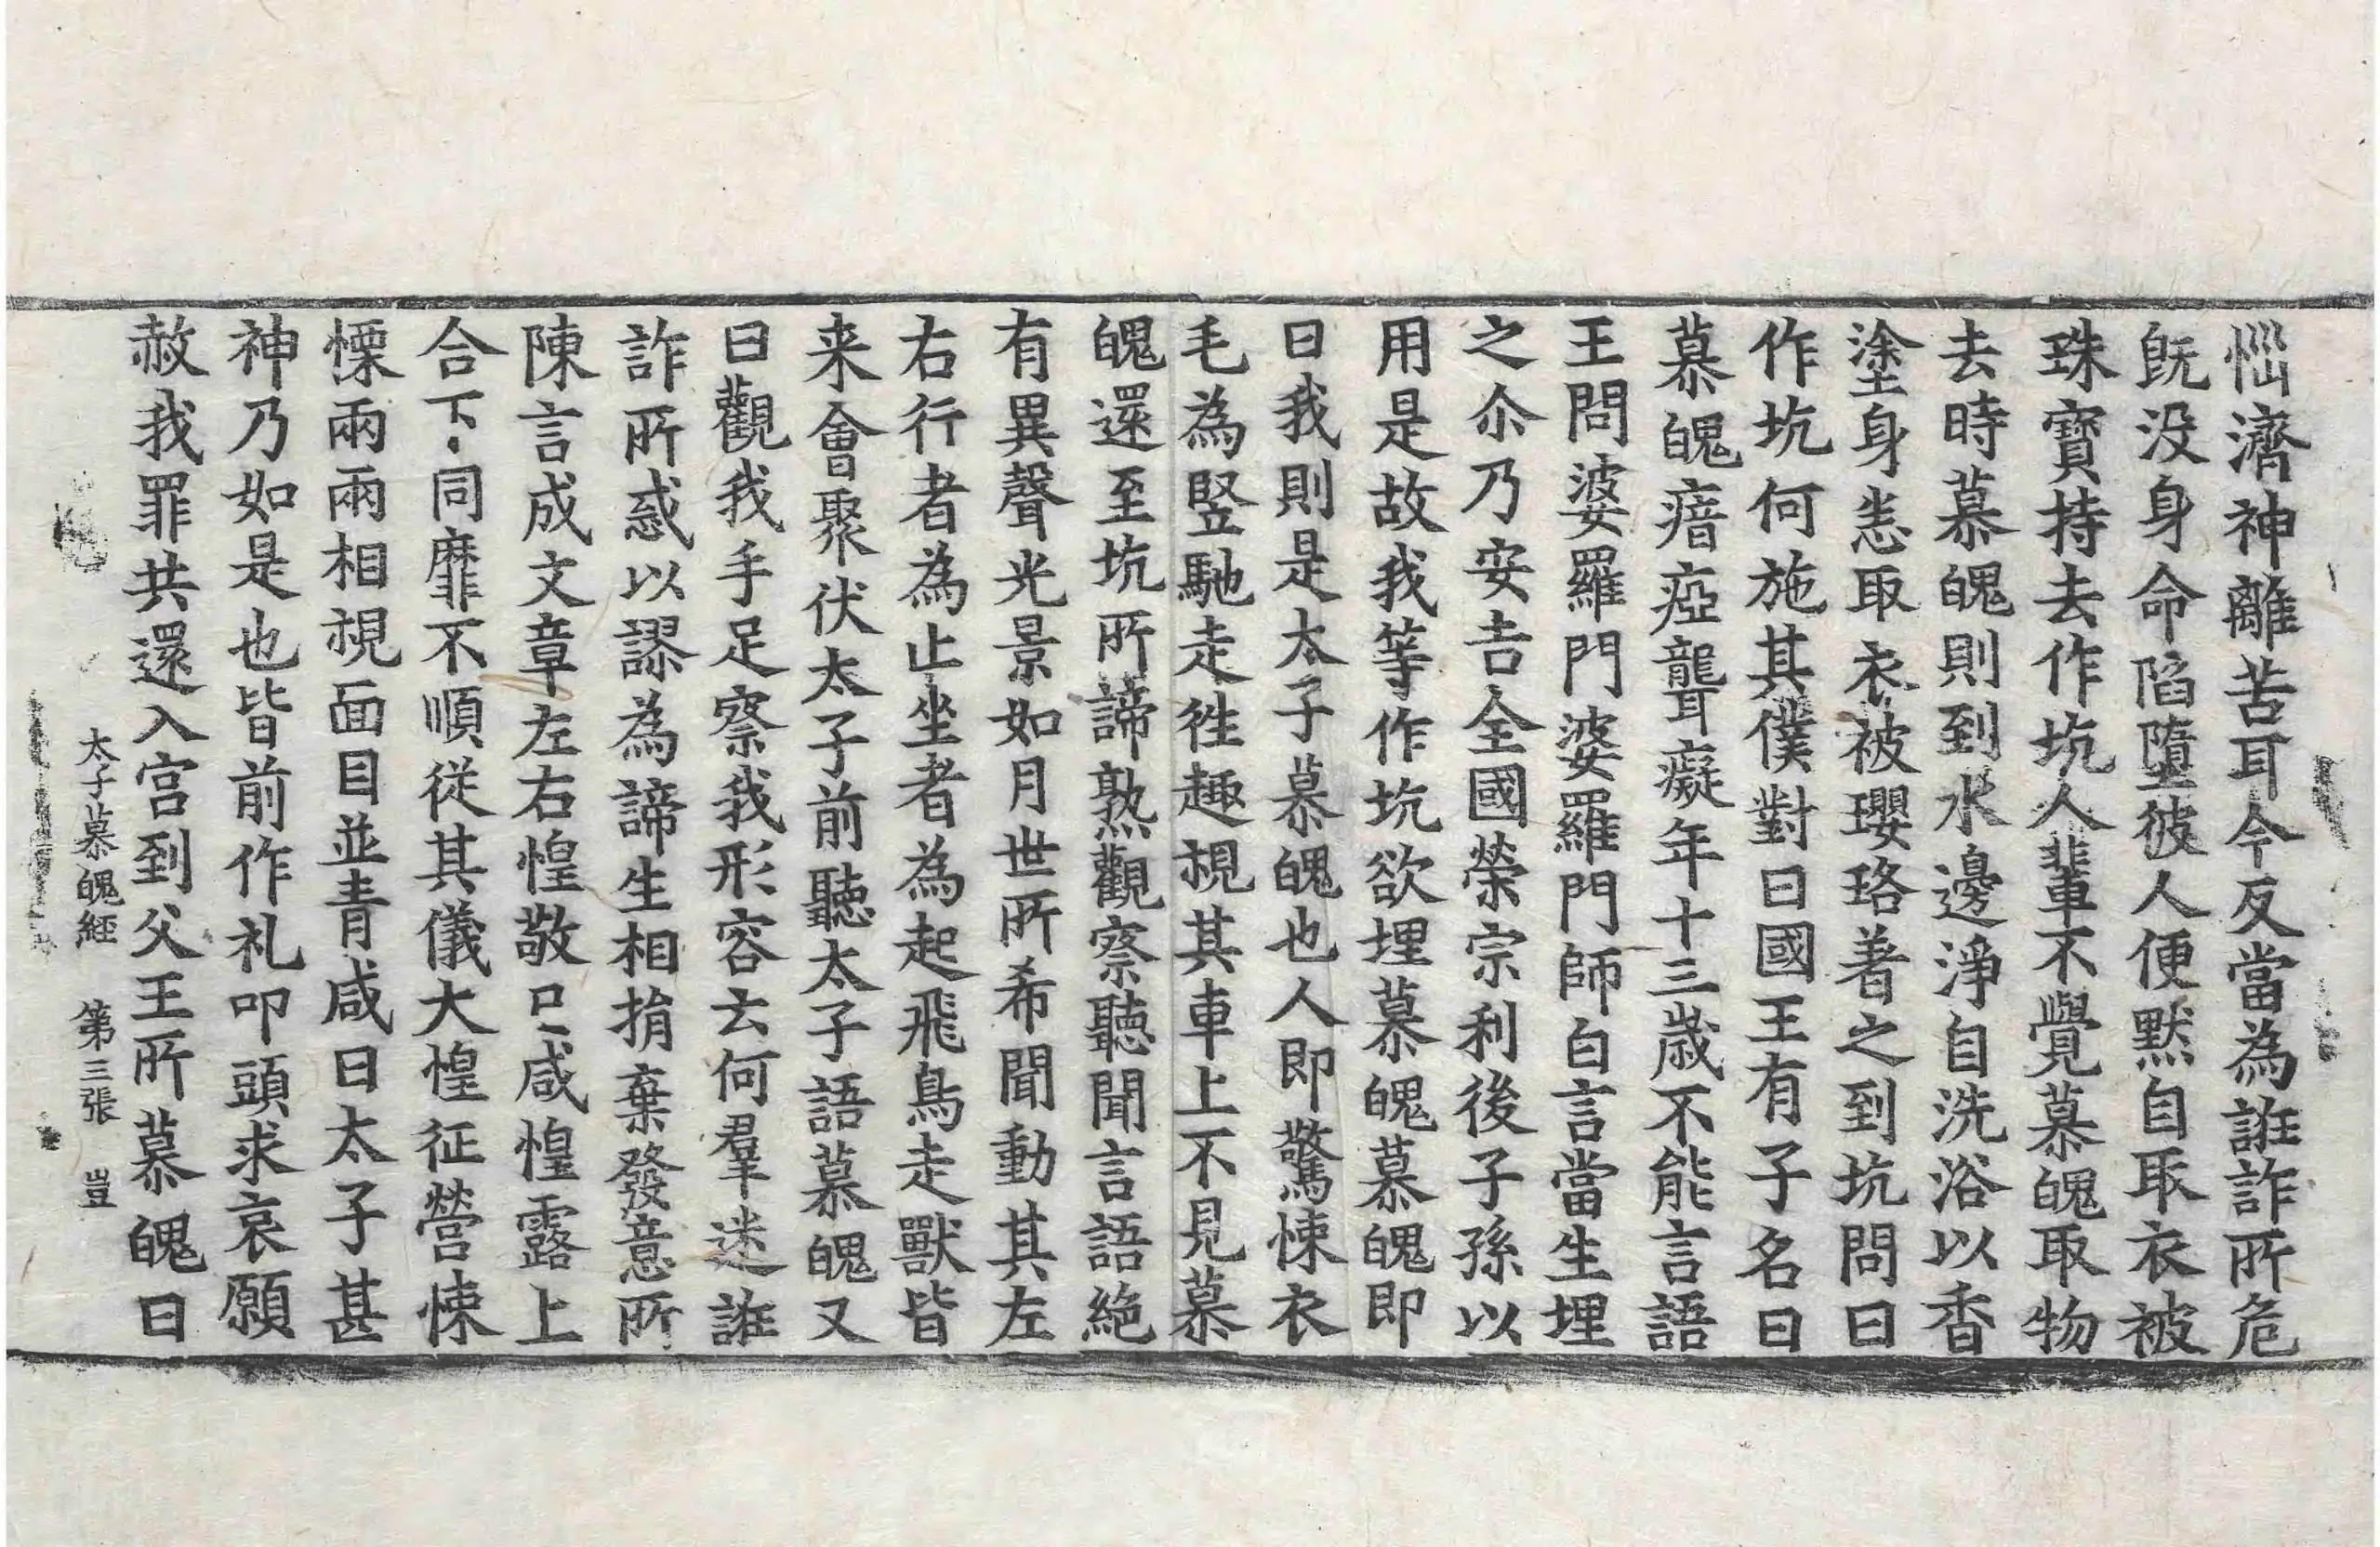 惱濟神離苦耳今反當為誑詐所危
旣没身命陷墮彼人便默自取衣被
珠寶持去作坑人輩不覺慕魄取物
去時慕魄則到水邊淨自洗浴以香
塗身恙取衣被瓔珞著之到坑問曰
作坑何施其僕對曰國王有子名曰
慕魄瘖瘂聾癡年十三歲不能言語
王問婆羅門婆羅門師白言當生埋
之尒乃安吉全國榮宗利後子孫以
用是故我等作坑欲埋慕魄慕魄即
曰我則是太子慕魄也人即驚悚衣
毛為竪馳走徃趣視其車上不見慕
魄還至坑所諦熟觀察聽聞言語絶
有異聲光景如月世所希聞動其左
右行者為止坐者為起飛鳥走獸皆
来會聚伏太子前聽太子語慕魄又
曰觀我手足察我形容云何羣迷誑
詐所惑以謬為諦生相捐棄發意所
陳言成文章左右惶敬口咸惶露上
合下同靡不順從其儀大惶征營悚
慄兩兩相視面目並青咸曰太子甚
神乃如是也皆前作礼叩頭求哀願
赦我罪共還入宮到父王所慕魄曰
太子慕魄經 第三張 豈